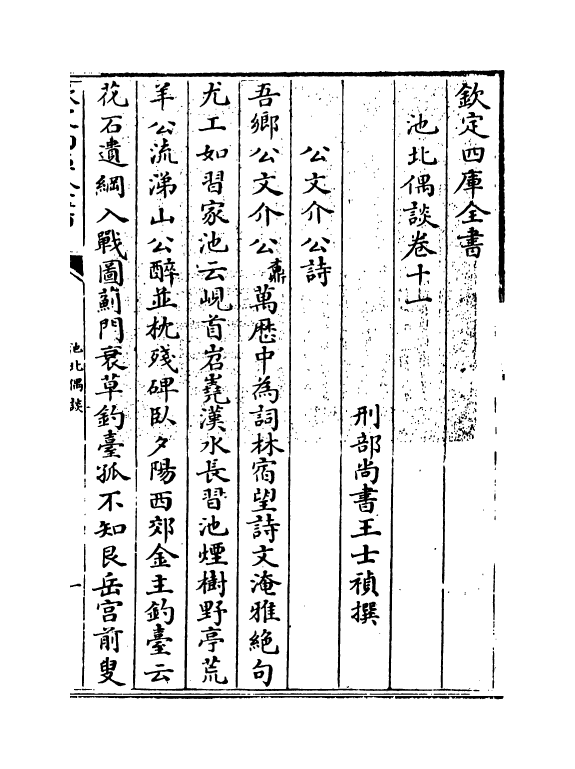 欽定四庫全書
池北偶談卷十一
刑部尚書王士禎撰
公文介公詩
吾鄉公文介公鼐萬厯中為詞林宿望詩文淹雅絶句
尤工如習家池云峴首岧嶤漢水長習池煙樹野亭荒
羊公流涕山公醉並枕殘碑臥夕陽西郊金主釣臺云
花石遺綱入戰圖薊門衰草釣臺孤不知艮岳宫前叟
池北偶談
一